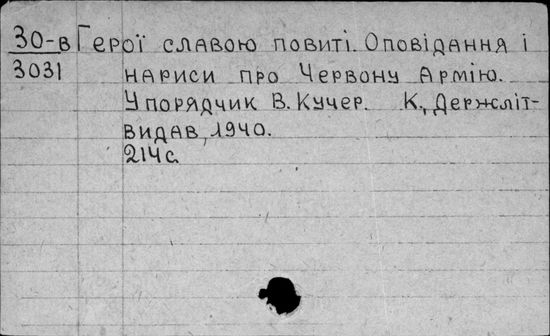 30-в Герої славою повиті. Оповідання і
3031 нариси про Червону Армію.
Упорядчик В. Кучер. К., Держліт-
видав, 1940.
214 с.